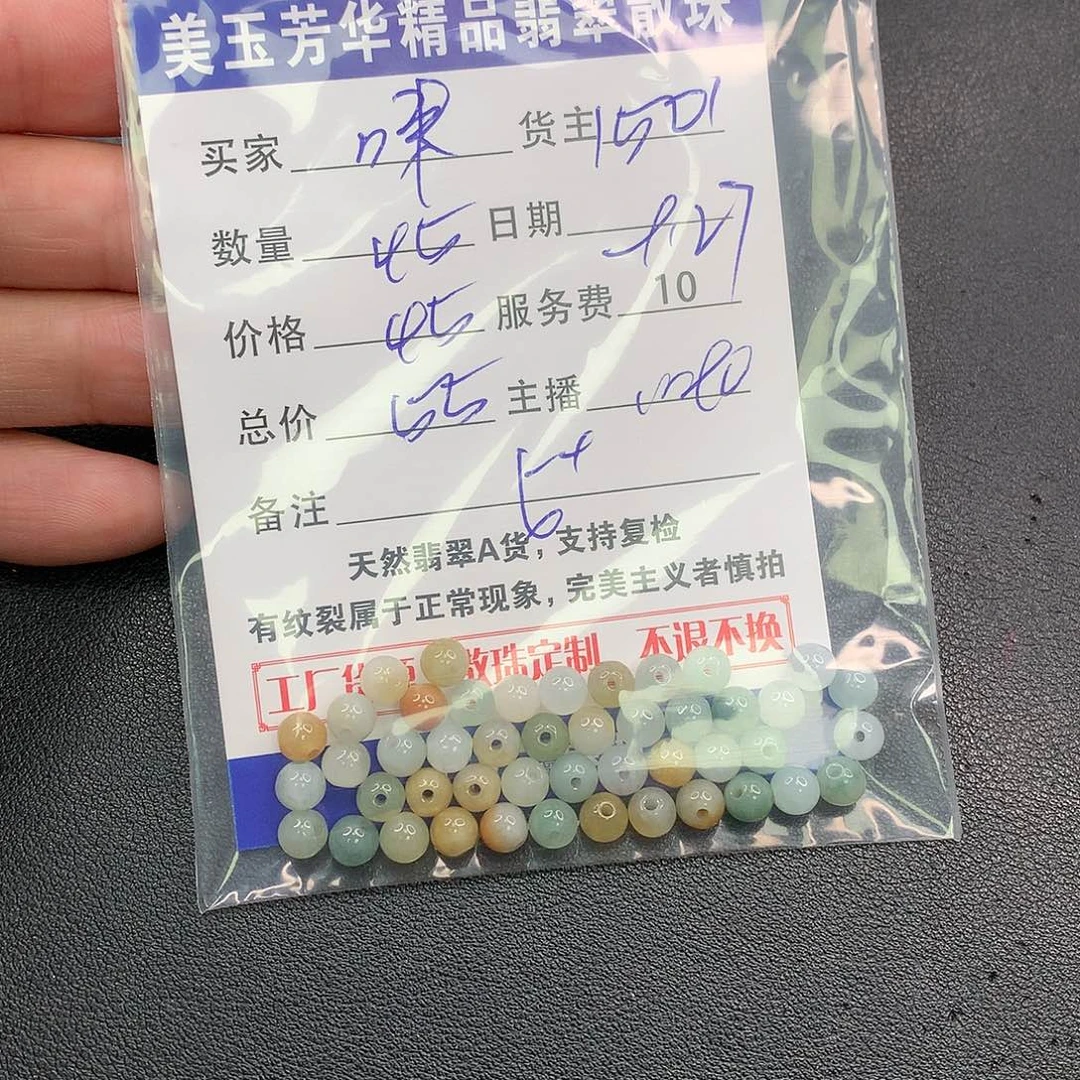 美玉芳华精品翡翠散珠
买家 货主 1501
数量 45 日期
价格 45 服务费 10
总价 55 主播
备注
天然翡翠A货，支持复检
有纹裂属于正常现象，完美主义者慎拍
工厂货 散珠定制 不退不换